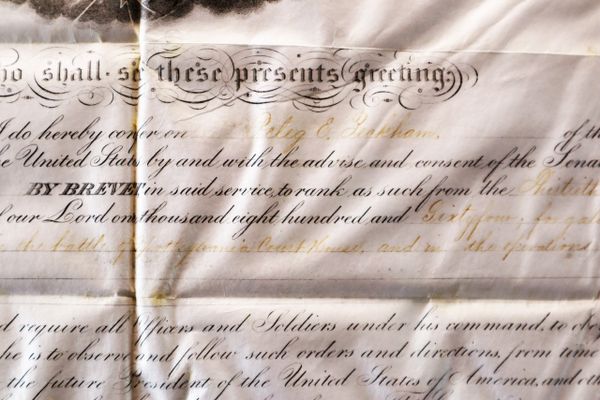 ho shall se these presents greeting;
I do hereby confer on Peleg E. Peckham. of th
e United States by and with the advise and consent of the Sena
BY BREVET in said service, to rank as such from the
of our Lord one thousand eight hundred and Sixty four, for gal
the battle of Spottsylvania Court House, and in the operations
d require all Officers and Soldiers under his command, to obey
he is to observe and follow such orders and directions, from time
the future President of the United States of America, and oth